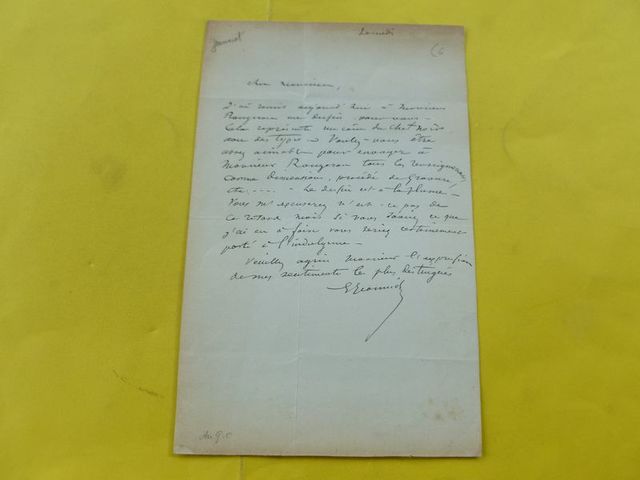 Jeanniot
Samedi
Cher Monsieur,
J'ai remis aujourd'hui à Monsieur
Rougeron un dessin pour vous —
Cela représente un coin du Chat Noir
avec des types — Voulez-vous être
assez aimable pour envoyer à
Monsieur Rougeron tous les renseignements
comme dimension, procédé de gravure,
etc. .... — Le dessin est à la plume —
Vous m'excuserez n'est-ce pas de
ce retard mais si vous saviez ce que
j'ai eu à faire vous seriez certainement
porté à l'indulgence —
Veuillez agréer Monsieur l'expression
de mes sentiments les plus distingués
G Jeanniot